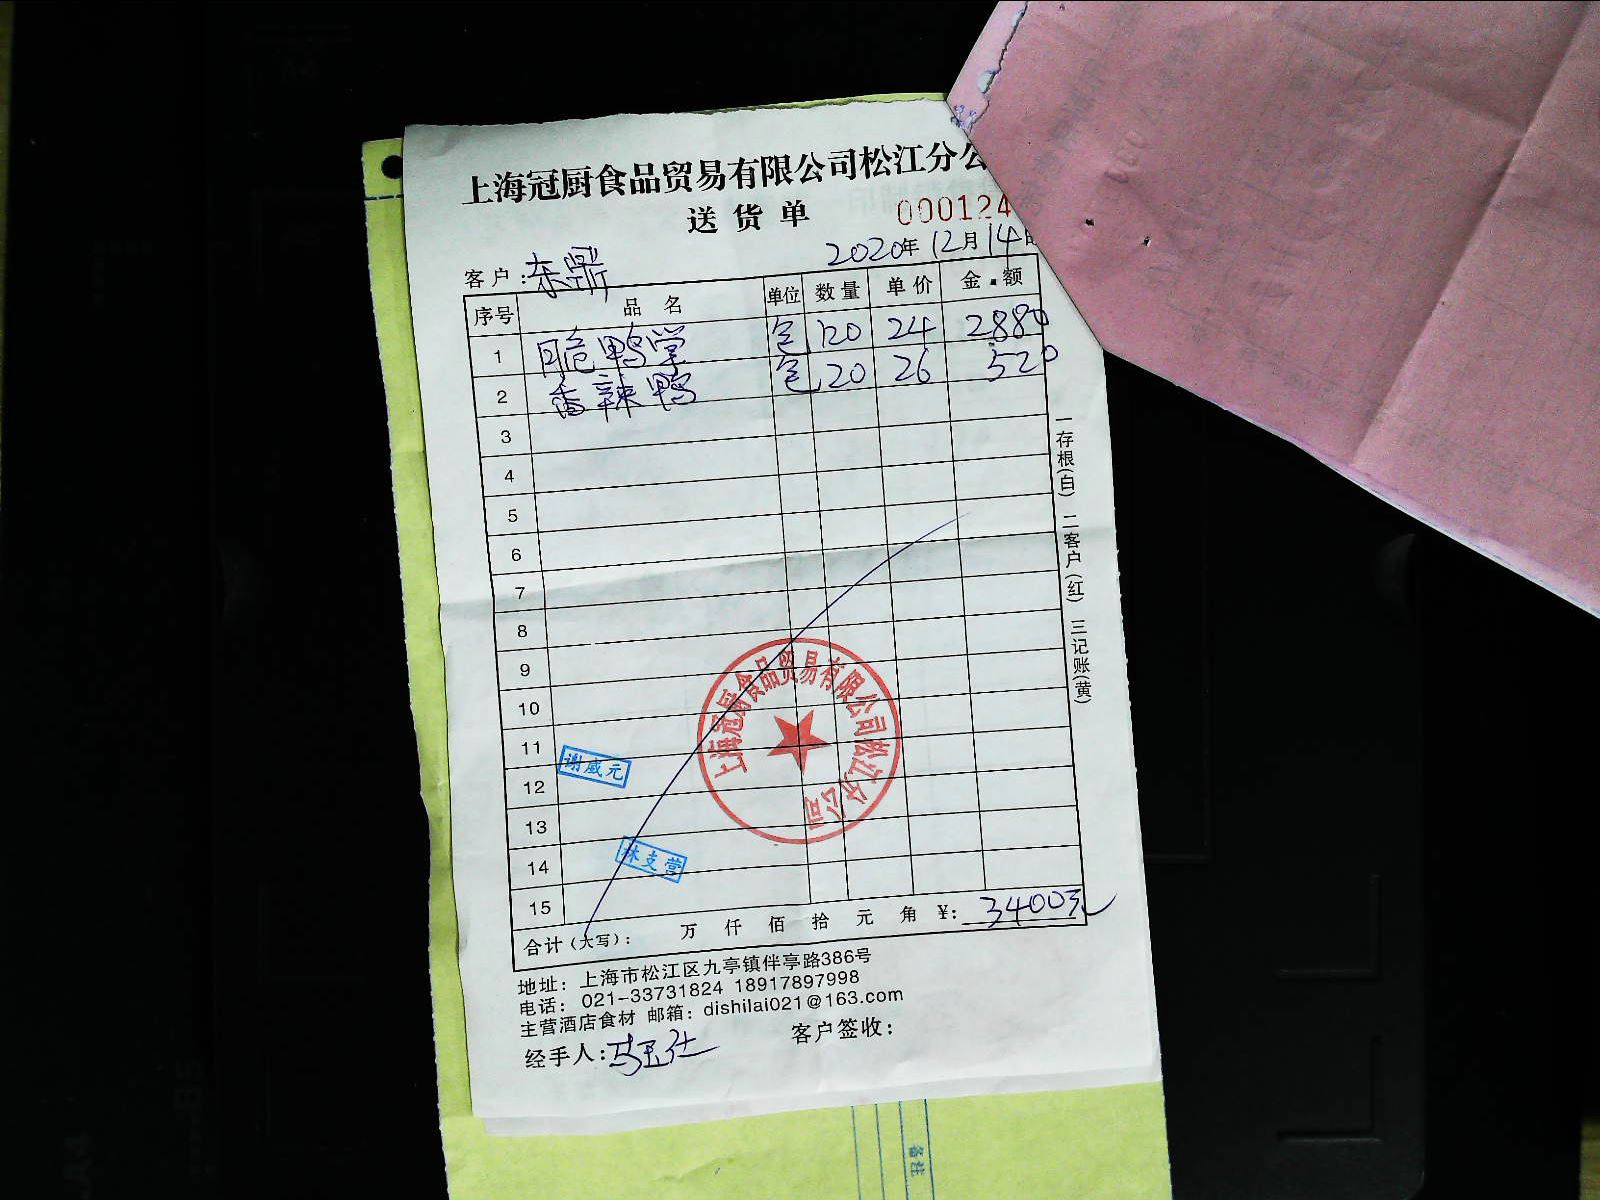 上海冠厨食品贸易有限公司松江分公
送货单
000124
2020年12月14日
客户：东鼎
序号 品名 单位 数量 单价 金额
1 脆鸭掌 包 120 24 2880
2 香辣鸭 包 20 26 520
3
4
5
6
7
8
9
10
11
12
13
14
15
一存根(白) 二客户(红) 三记账(黄)
上海冠厨食品贸易有限公司松江分公司
谢威元
林支营
合计(大写)： 万 仟 佰 拾 元 角 ¥: 3400元
地址：上海市松江区九亭镇伴亭路386号
电话：021-33731824 18917897998
主营酒店食材 邮箱：dishilai021@163.com
经手人：
客户签收：
备注